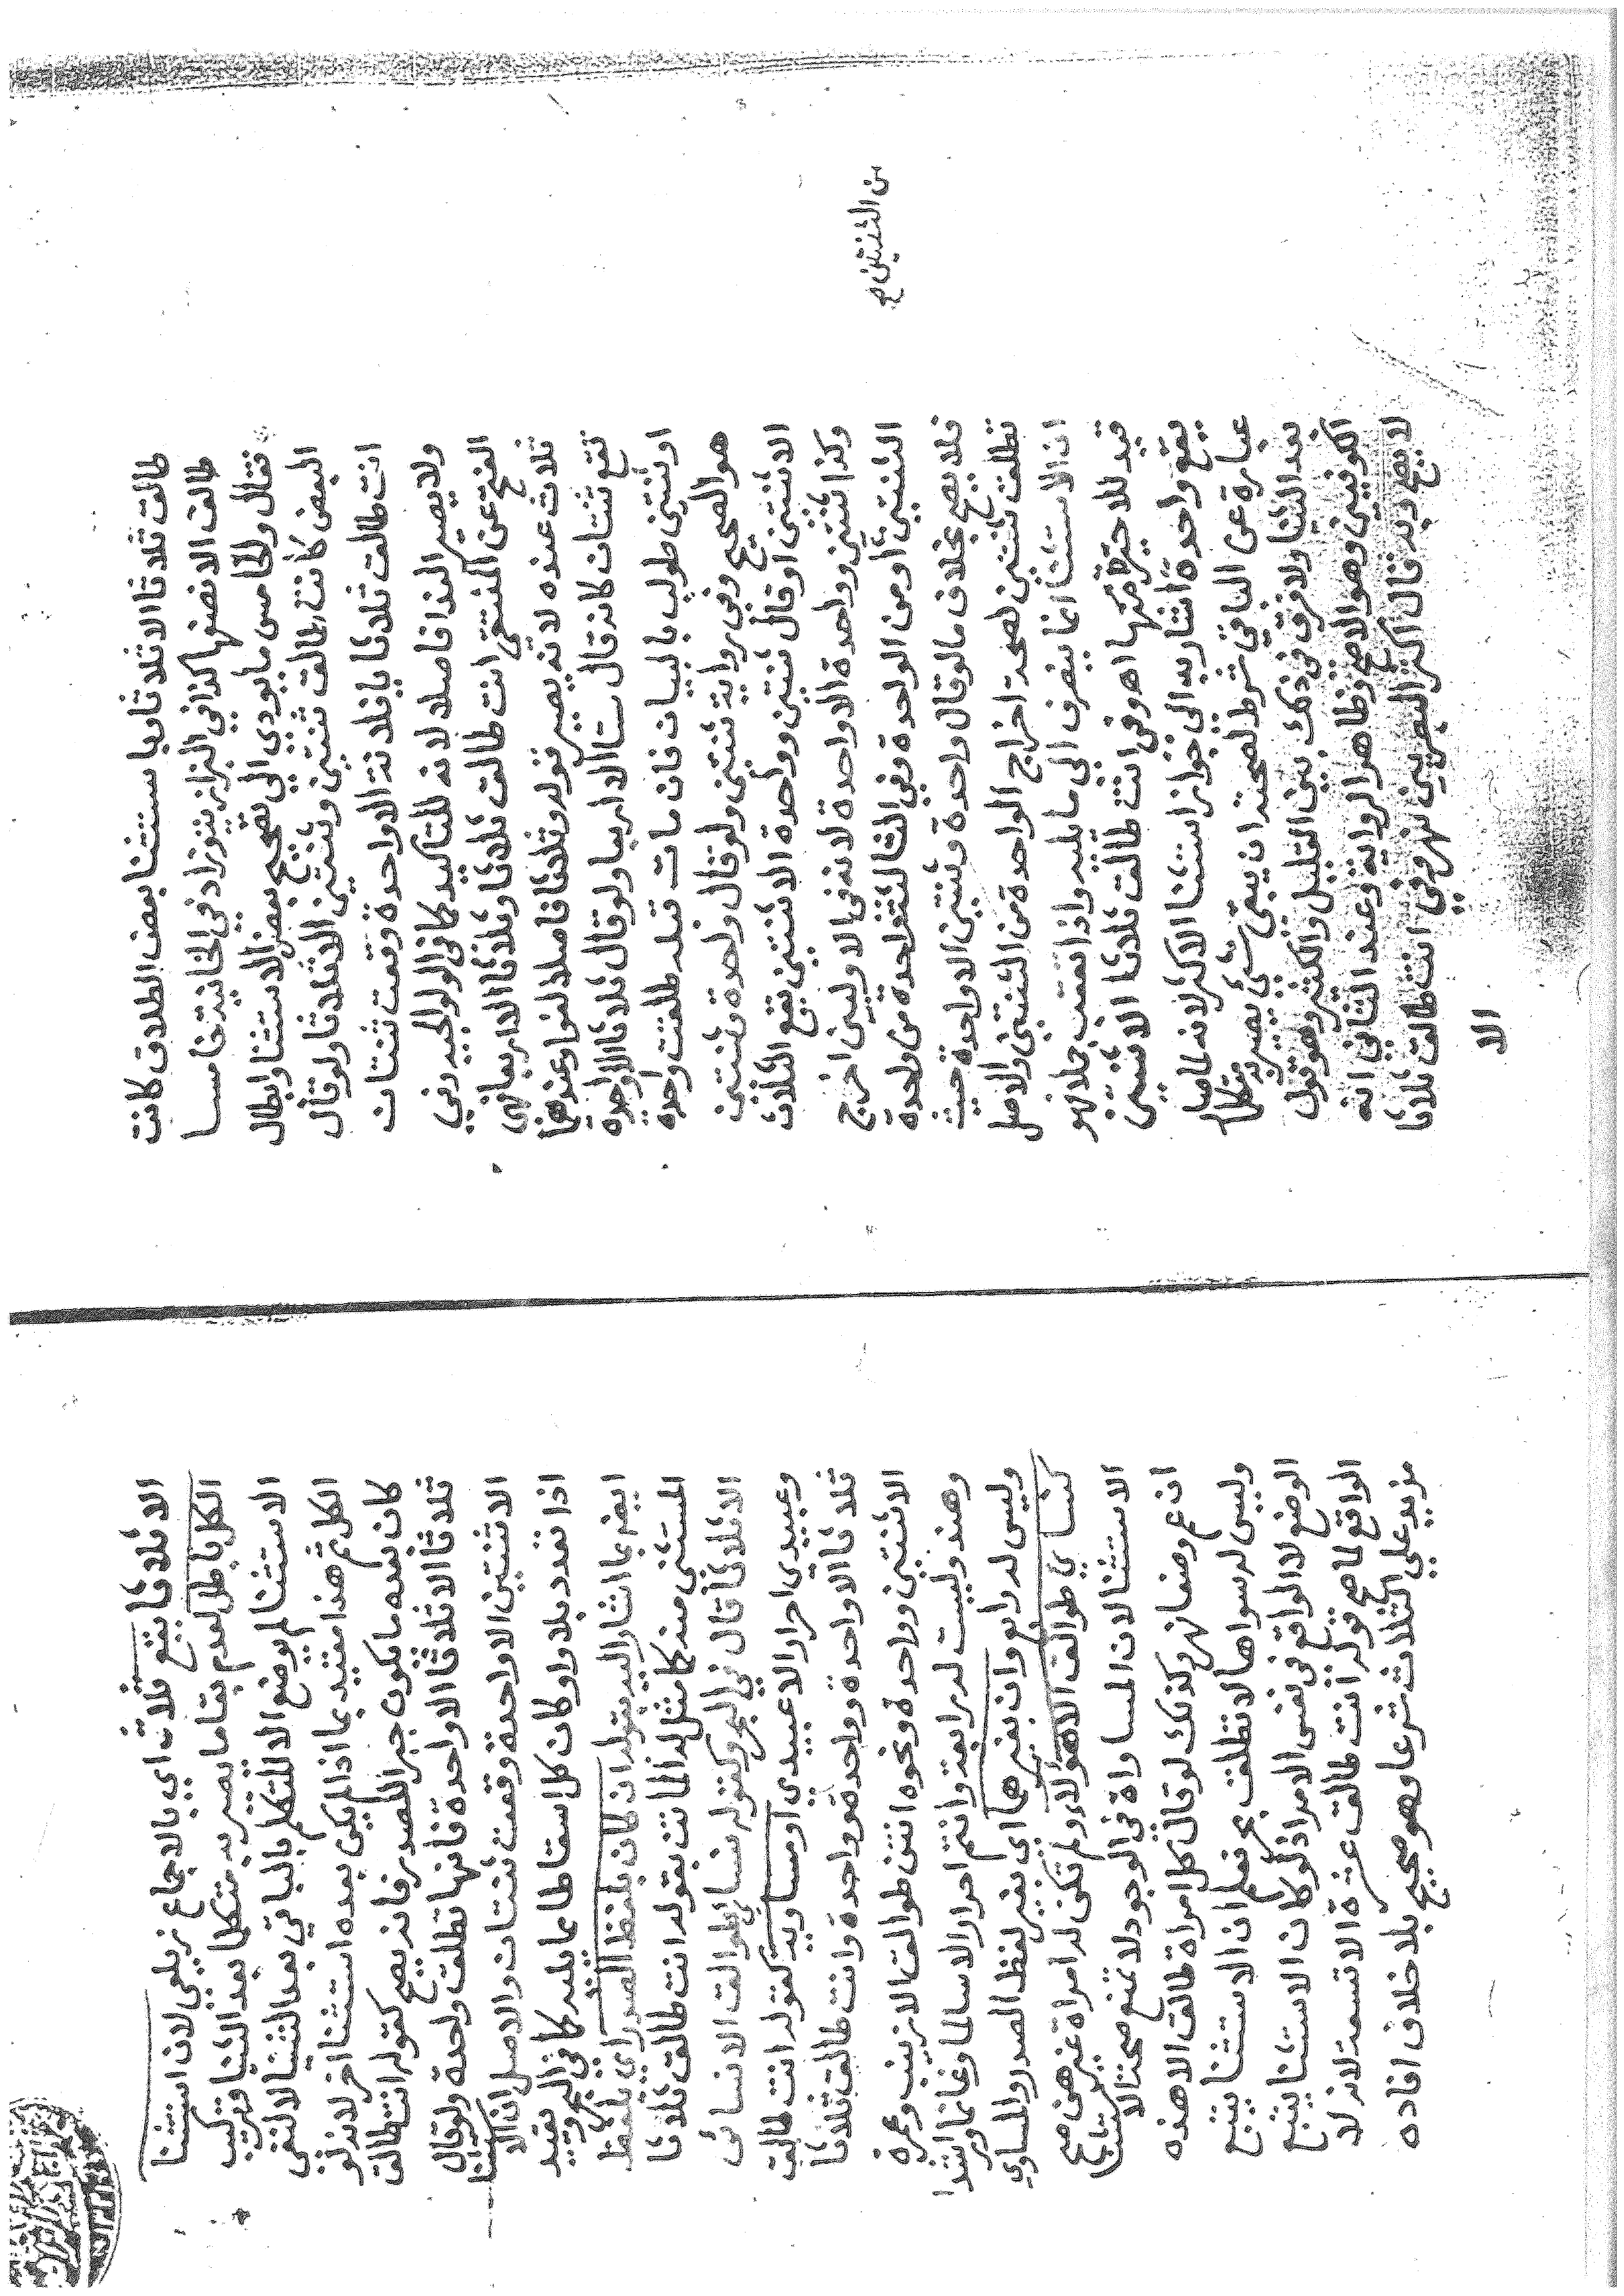 طالق ثلاثا الا ثلاثا وباستثنا بعض الطلاق كانت
طالق الا نصفها كذا في البزازيتوزاد في الخانية خامسا
فقال والخامس مايودي الي تصحيح بعض الاستثنا وابطال
البعض كانت طالق ثنتين وثنتين الا ثلاثا ولو قال
انت طالق ثلاثا يا فلانة الا واحدة وقعت ثنتان
ولا يصير الندا فاصلا لانه للتاكيد كما في الولوالجيه وفي
الفتح عن المنتقى انت طالق ثلاثا وثلاثا الا اربعا فهي
ثلاث عنده لانه يصير قوله وثلاثا فاصلا لغوا وعندهما
تقع ثنتان كانه قال ستا الا اربعا ولو قال ثلاثا الا واحدة
او ثنتين طولب بالبيان فان مات قبله طلقت واحدة
هو الصحيح وفي رواية ثنتين ولو قال واحدة وثنتين
الا ثنتين او قال ثنتين وواحدة الا ثنتين يقع الثلاث
وكذا ثنتين وواحدة الا واحدة لانه في الاوليين اخرج
الثنتين أو من الواحدة وفي الثالثة واحدة من واحدة
فلا يصح بخلاف ما لو قال واحدة وثنتين الا واحدة حيث
تطلق ثنتين لصحة اخراج الواحدة من الثنتين والاصل
ان الاستثنا انما ينصرف الي ما يليه واذا تعقب جملا فهو
قيد للاخيرة منها اه وفي انت طالق ثلاثا الا ثنتين
يقع واحدة اشار به الي جواز استثنا الاكثر لانه لما صار
عبارة عن الباقي شرط لصحته ان يبقى شي يصير متكلما
بعد الثنيا ولا فرق في ذلك بين القليل والكثير وهو قول
الكوفيين وهو الاصح وظاهر الرواية وعند الثاني انه
لا يصح وبه قال اكثر البصريين نهر وفي انت طالق ثلاثا
الا
من الثنتين صح
الا ثلاثا يقع ثلاث اي بالاجماع زيلعي لان استثنا
الكل باطل لعدم بقا ما يصير به متكلما بعد الثنيا وتركيب
الاستثنا لم يوضع الا للتكلم بالباقي بعد الثنيا لا لنفي
الكل ثم هذا مقيد بما اذا لم يكن بعده استثنا اخر لانه لو
كان بعده ما يكون جبرا للصدر فانه يصح كقوله انت طالق
ثلاثا الا ثلاثا الا واحدة فانها تطلق واحدة ولو قال
الا ثنتين الا واحدة وقعت ثنتان والاصل ان الاستثنا
اذا تعدد بلا واو كان كل اسقاطا مما يليه كما في البحر وقيد
ايضا بما اشار اليه بقوله ان كان بلفظ الصدر اي بلفظ
المستثنى منه كما مثل له الماتن بقوله انت طالق ثلاثا
الا ثلاثا قال في البحر وكقوله نسائي طوالق الا نسائي
وعبيدي احرار الا عبيدي او مساويه كقوله انت طالق
ثلاثا الا واحدة وواحدة وواحدة وانت طالق ثلاثا
الا ثنتين وواحدة ونحوه انتن طوالق الا زينب وعمرة
وهند وليست له رابعة وانتم احرار الا سالما وغانما وراشدا
وليس له رابع وان بغيرهما اي بغير لفظ الصدر والمساوي
كنسائي طوالق الا هولاء ولم تكن له امراة غيرهن صح
الاستثنا لان المساواة في الوجود لا تمنع صحته الا
ان عم وضعا نهر وكذلك لو قال كل امراة طالق الا هذه
وليس له سواها لا تطلق بحر فعلم ان الاستثنا يتبع
الوضع لا الواقع في نفس الامر اذ لو كان الاستثنا يتبع
الواقع لما صح قوله انت طالق عشرة الا تسعة لانه لا
مزيد علي الثلاث شرعا وهو صحيح بلا خلاف افاده